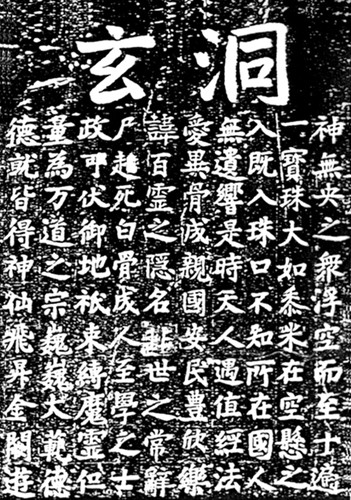 洞玄
神無央之衆浮空而至士遍
一寶珠大如黍米在空懸之
入既入珠口不知所在國人
無遺響是時天人遇值經法
愛異骨成親國安民豊欣樂
諱百靈之隱名非世之常辭
尸起死白骨成人至學之士
政叩伏御地祇束縛魔靈但
量為万道之宗巍巍大範德
德就皆得神仙飛昇金闕遊